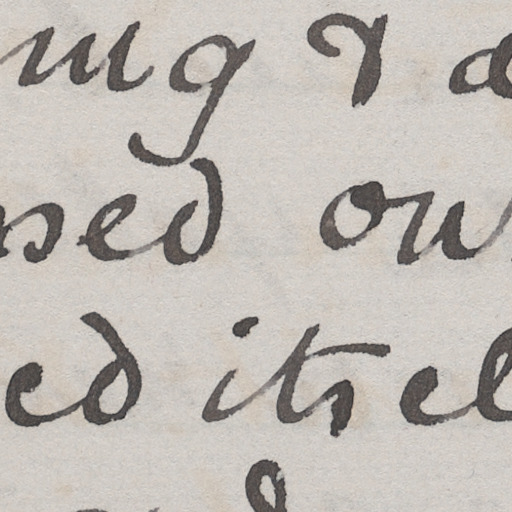 ing &
sed ou
ed itsel